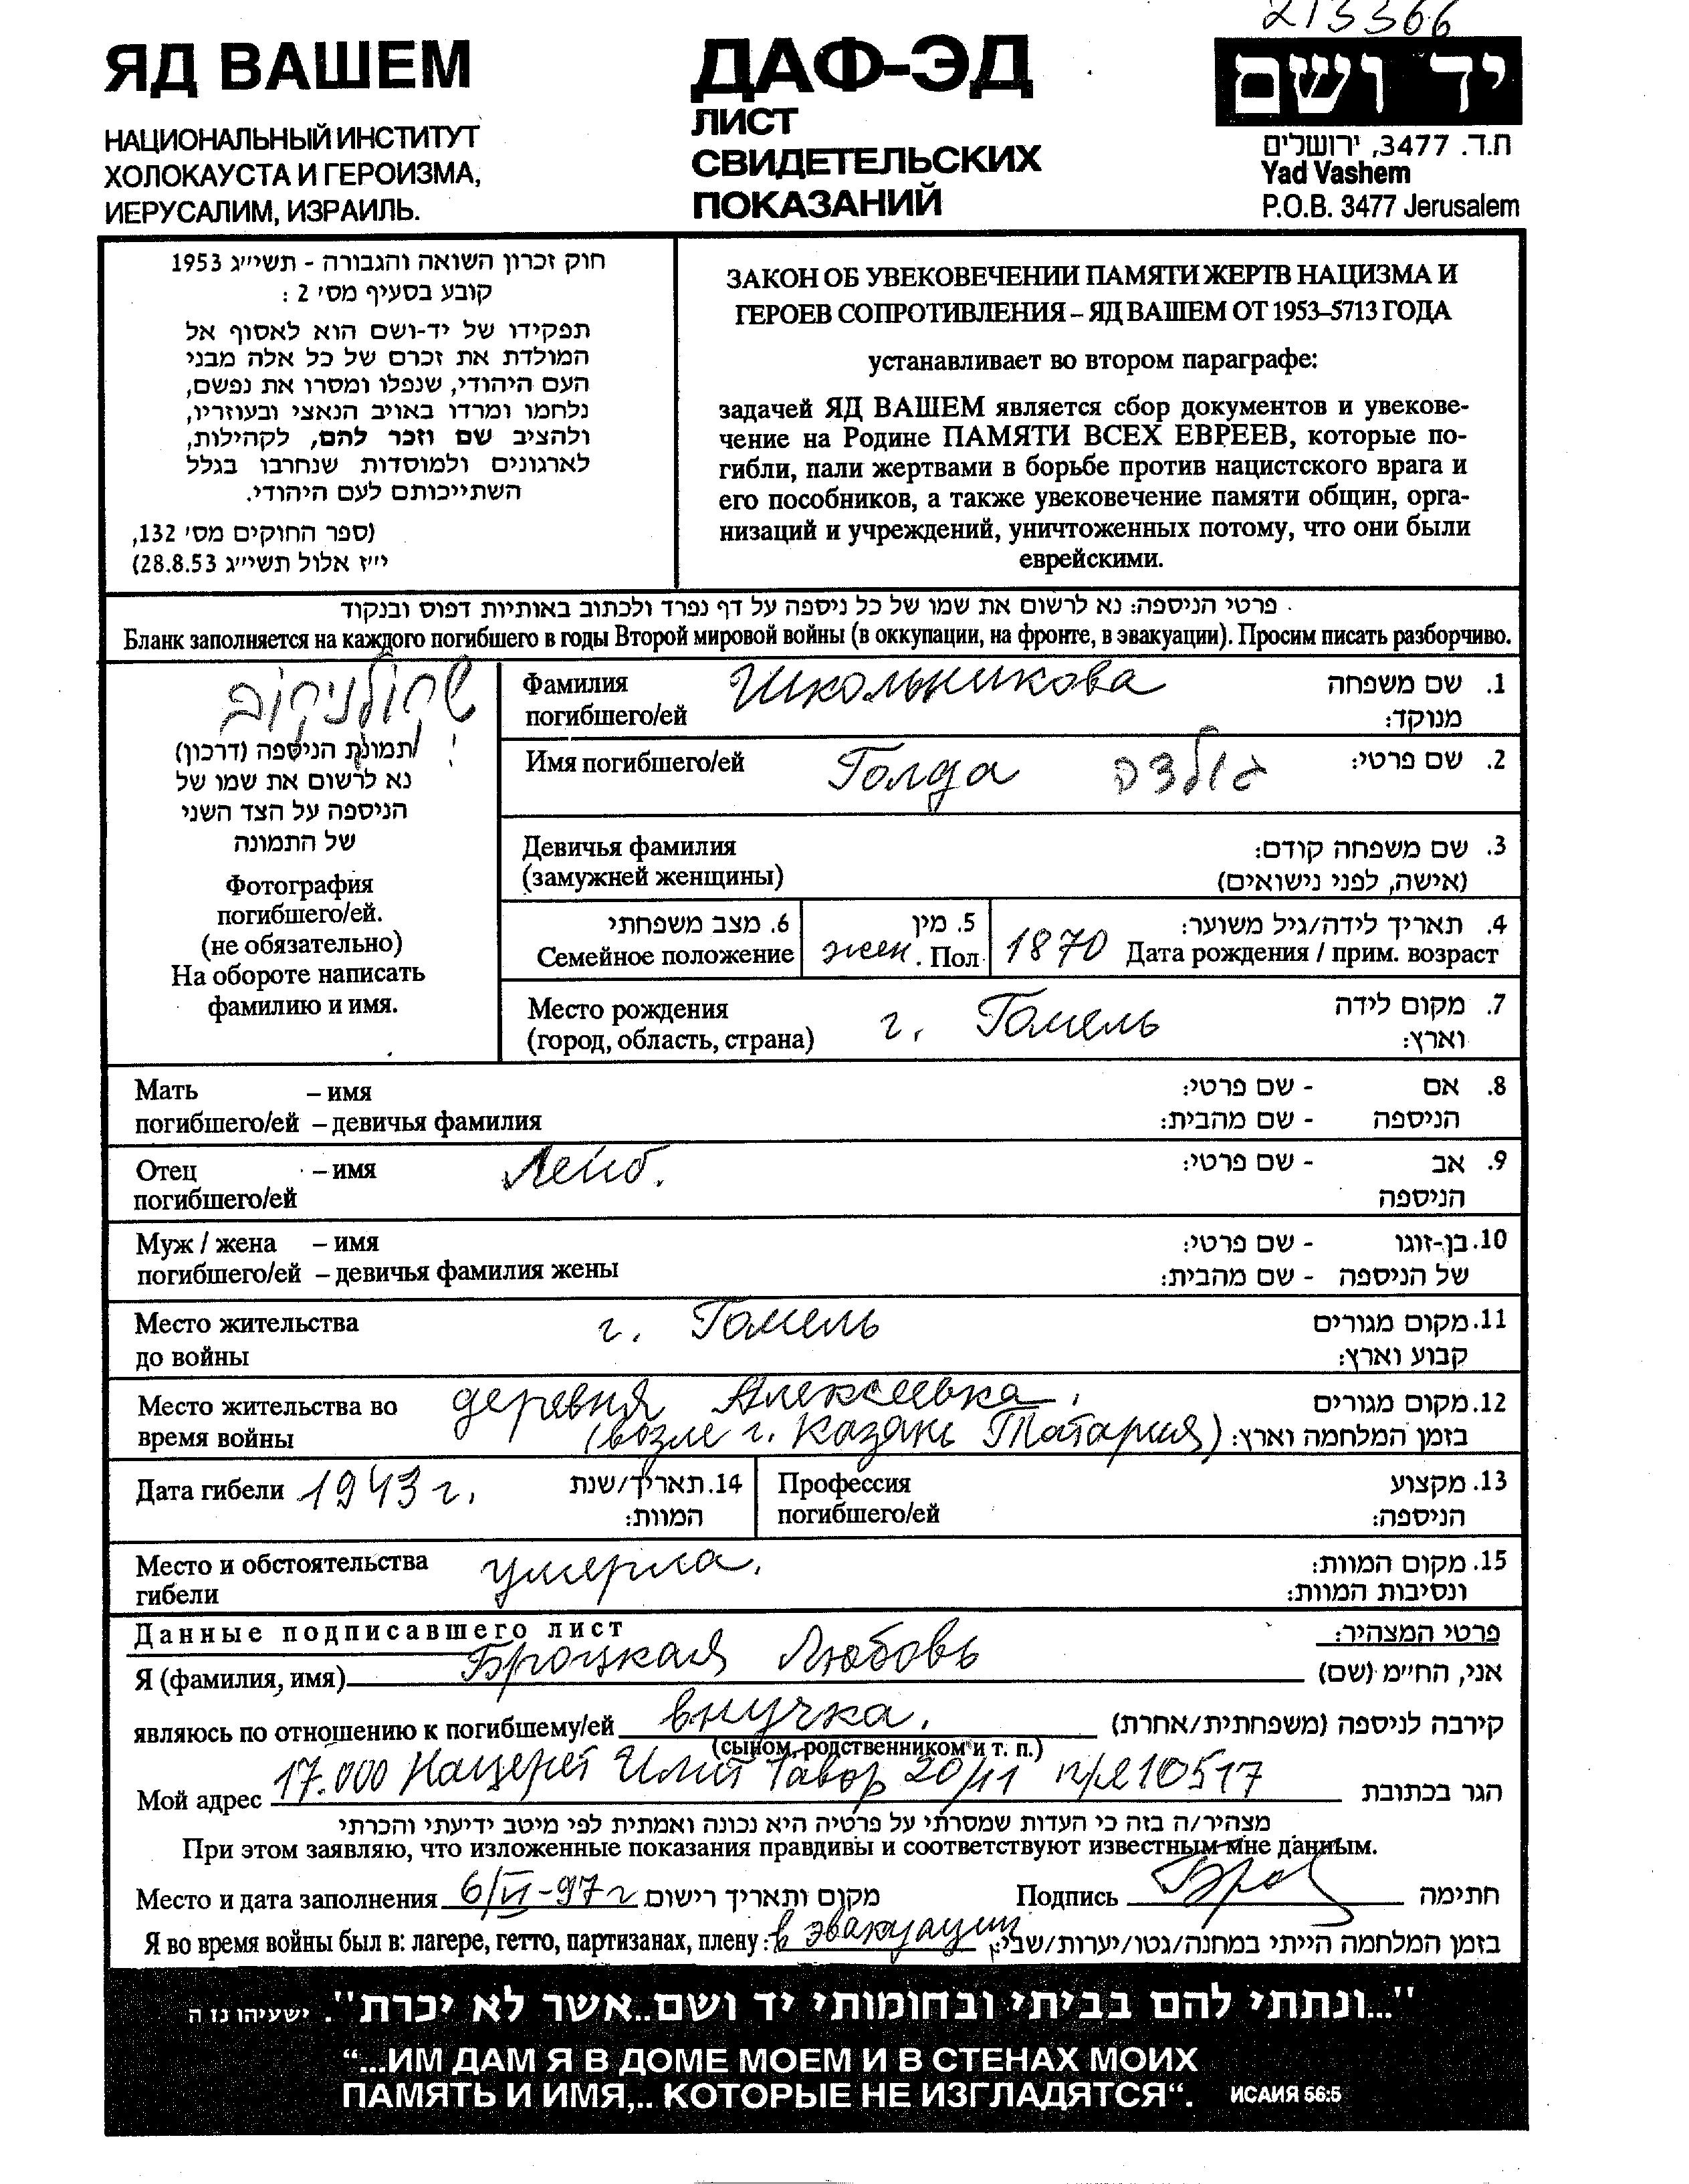 213366
ЯД ВАШЕМ
НАЦИОНАЛЬНЫЙ ИНСТИТУТ
ХОЛОКАУСТА И ГЕРОИЗМА,
ИЕРУСАЛИМ, ИЗРАИЛЬ.
ДАФ-ЭД
ЛИСТ
СВИДЕТЕЛЬСКИХ
ПОКАЗАНИЙ
יד ושם
ת.ד. 3477, ירושלים
Yad Vashem
P.O.B. 3477 Jerusalem
חוק זכרון השואה והגבורה - תשי״ג 1953
קובע בסעיף מס׳ 2 :
תפקידו של יד-ושם הוא לאסוף אל
המולדת את זכרם של כל אלה מבני
העם היהודי, שנפלו ומסרו את נפשם,
נלחמו ומרדו באויב הנאצי ובעוזריו,
ולהציב שם וזכר להם, לקהילות,
לארגונים ולמוסדות שנחרבו בגלל
השתייכותם לעם היהודי.
(ספר החוקים מס׳ 132,
י״ז אלול תשי״ג 28.8.53)
ЗАКОН ОБ УВЕКОВЕЧЕНИИ ПАМЯТИ ЖЕРТВ НАЦИЗМА И
ГЕРОЕВ СОПРОТИВЛЕНИЯ – ЯД ВАШЕМ ОТ 1953–5713 ГОДА
устанавливает во втором параграфе:
задачей ЯД ВАШЕМ является сбор документов и увекове-
чение на Родине ПАМЯТИ ВСЕХ ЕВРЕЕВ, которые по-
гибли, пали жертвами в борьбе против нацистского врага и
его пособников, а также увековечение памяти общин, орга-
низаций и учреждений, уничтоженных потому, что они были
еврейскими.
פרטי הניספה: נא לרשום את שמו של כל ניספה על דף נפרד ולכתוב באותיות דפוס ובנקוד
Бланк заполняется на каждого погибшего в годы Второй мировой войны (в оккупации, на фронте, в эвакуации). Просим писать разборчиво.
שקולניקוב
תמונת הניספה (דרכון)
נא לרשום את שמו של
הניספה על הצד השני
של התמונה
Фотография
погибшего/ей.
(не обязательно)
На обороте написать
фамилию и имя.
Фамилия Школьникова 1. שם משפחה
погибшего/ей מנוקד:
Имя погибшего/ей Голда גולדה 2. שם פרטי:
Девичья фамилия 3. שם משפחה קודם:
(замужней женщины) (אישה, לפני נישואים)
6. מצב משפחתי 5. מין 4. תאריך לידה/גיל משוער:
Семейное положение жен. Пол 1870 Дата рождения / прим. возраст
Место рождения г. Гомель 7. מקום לידה
(город, область, страна) וארץ:
Мать – имя 8. אם - שם פרטי:
погибшего/ей – девичья фамилия הניספה - שם מהבית:
Отец – имя Лейб. 9. אב - שם פרטי:
погибшего/ей הניספה
Муж / жена – имя 10. בן-זוגו - שם פרטי:
погибшего/ей – девичья фамилия жены של הניספה - שם מהבית:
Место жительства г. Гомель 11. מקום מגורים
до войны קבוע וארץ:
Место жительства во деревня Алексеевка. 12. מקום מגורים
время войны (возле г. Казань Татария) בזמן המלחמה וארץ:
Дата гибели 1943 г. 14. תאריך/שנת Профессия 13. מקצוע
המוות: погибшего/ей הניספה:
Место и обстоятельства умерла. 15. מקום המוות:
гибели ונסיבות המוות:
Данные подписавшего лист פרטי המצהיר:
Я (фамилия, имя) Броцкая Любовь אני, החי״מ (שם)
являюсь по отношению к погибшему/ей внучка. קירבה לניספה (משפחתית/אחרת)
(сыном, родственником и т. п.)
Мой адрес 17.000 Нацерет Илит Тавор 20/11 п/я 10517 הגר בכתובת
מצהיר/ה בזה כי העדות שמסרתי על פרטיה היא נכונה ואמתית לפי מיטב ידיעתי והכרתי
При этом заявляю, что изложенные показания правдивы и соответствуют известным мне данным.
Место и дата заполнения 6/VI-97г מקום ותאריך רישום Подпись Бро חתימה
Я во время войны был в: лагере, гетто, партизанах, плену: в эвакуации בזמן המלחמה הייתי במחנה/גטו/יערות/שבי:
"...ונתתי להם בביתי ובחומותי יד ושם...אשר לא יכרת". ישעיהו נז ה
“...ИМ ДАМ Я В ДОМЕ МОЕМ И В СТЕНАХ МОИХ
ПАМЯТЬ И ИМЯ,.. КОТОРЫЕ НЕ ИЗГЛАДЯТСЯ“. ИСАИЯ 56:5